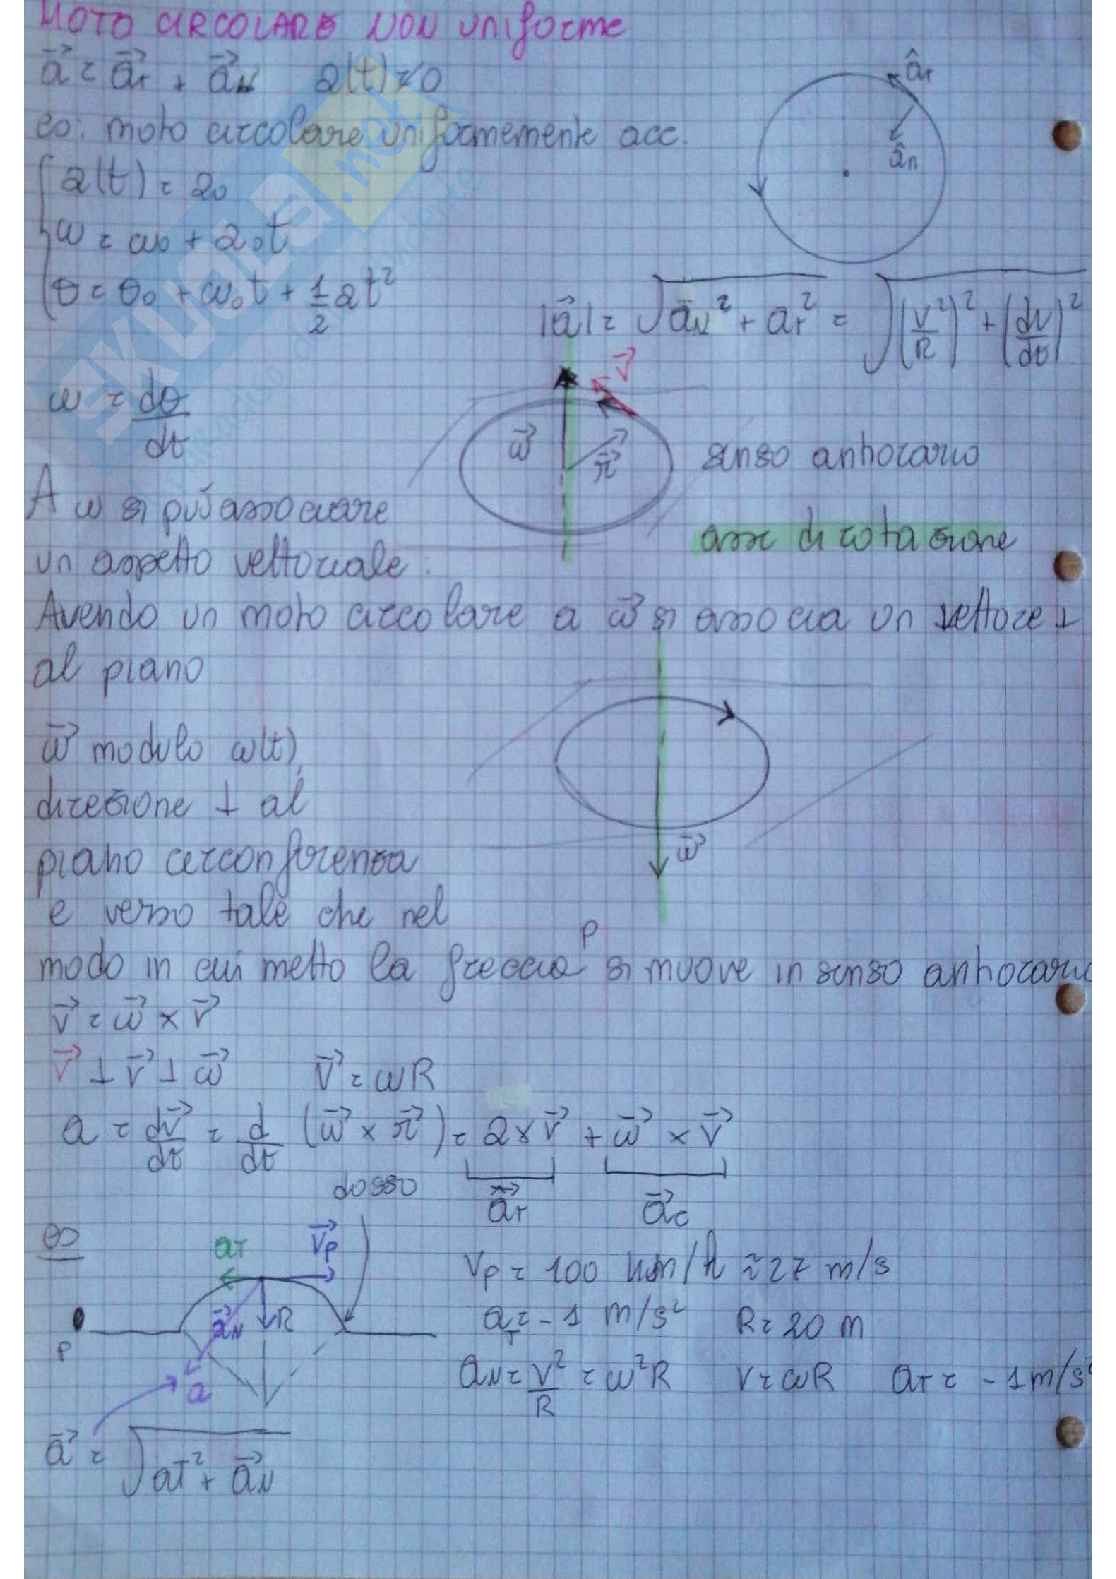 MOTO CIRCOLARE NON uniforme
a⃗ = a⃗T + a⃗N   α(t) ≠ 0
es: moto circolare uniformemente acc.
α(t) = α0
ω = ω0 + α0t
θ = θ0 + ω0t + 1/2 αt²
âT
ân
|a⃗| = √(a⃗N² + aT²) = √((v²/R)² + (dv/dt)²)
ω = dθ/dt
v⃗
ω⃗
r⃗
senso antiorario
asse di rotazione
A ω si può associare
un aspetto vettoriale:
Avendo un moto circolare a ω⃗ si associa un vettore ⊥
al piano
ω⃗ modulo ω(t),
direzione ⊥ al
piano circonferenza
e verso tale che nel
modo in cui metto la freccia P si muove in senso antiorario
ω⃗
v⃗ = ω⃗ × r⃗
v⃗ ⊥ r⃗ ⊥ ω⃗   v⃗ = ωR
a = dv⃗/dt = d/dt (ω⃗ × r⃗) = α × r⃗ + ω⃗ × v⃗
a⃗T   a⃗c
dosso
es
aT   v⃗P
a⃗N   R
P
a
vP = 100 km/h ≈ 27 m/s
aT = - 1 m/s²   R = 20 m
aN = v²/R = ω²R   v = ωR   aT = - 1 m/s²
a⃗ = √(aT² + a⃗N
SKUOLA.net